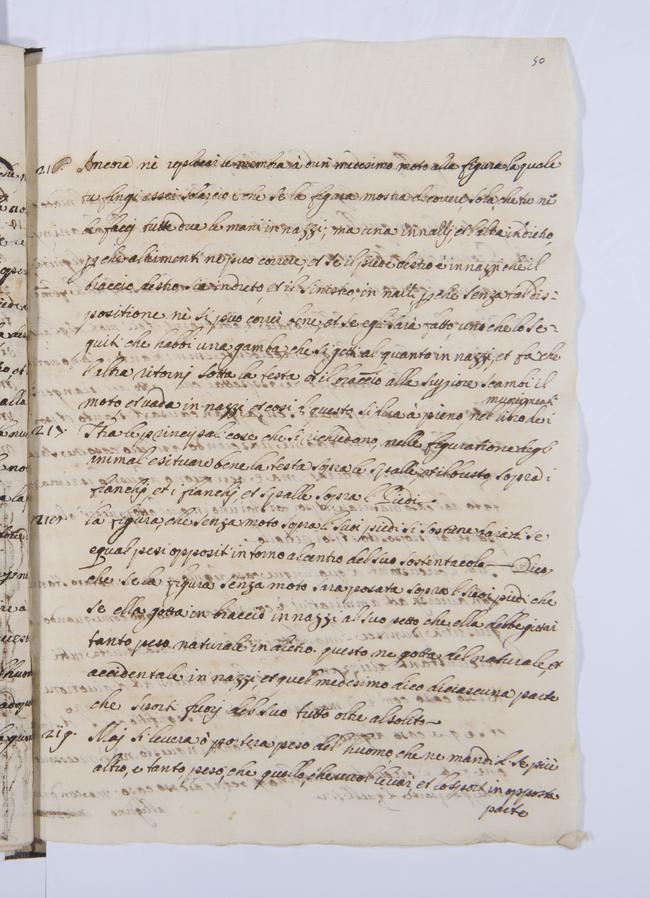 50
216. Ancora nè replicar le membra à d'un medesimo moto alla figura la quale
tu fingi esser sola, cioè che se la figura mostra di correr sola che tu nè
le facij tutte due le mani innazzi, ma una innallj et l'altra indietro,
perche altrimenti nè puo correre, et se il piede destro è innazzi che il
braccio destro sia indreto, et il sinistro innalli perche senza tal dis-
positione nè si può correr bene, et se egli sarà fatto uno che lo se-
guiti che habbi una gamba, che si getti al quanto innazzj, et fa che
l'altra ritornj sotto la testa et il braccio alla supriore scambi il
moto et vada innazzi et cosi di questo si dirà à pieno nel libro de i
movimenti
217. Tra le principal cose che si richiedano nelle figuratione degli
animali è situare bene la testa sopra le spalle et il busto sopra i
fianchj, et i fianchj et spalle sopra li Piedi.
218. La figura, che senza moto sopra li suoi piedi si sostiene darà di se
equal pesi oppositi intorno al centro del suo sostentacolo — Dico
che se la figura senza moto sara posata sopra li suoi piedi che
se ella gotta un braccio innazzi al suo petto che ella debbe gittar
tanto peso naturale in dietro. questo ne gotta del naturale, et
accidentale innazzi et quel medesimo dico di ciascuna parte
che sporti fuorj del suo tutto oltre al solito —
219. Maj si levera ò portera peso del huomo che ne mandi di se più
altro, e tanto peso, che quello, che vuol levar, et lo sporti in opposta
parte